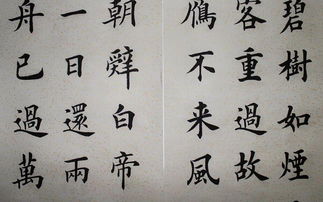 碧樹如煙
客重過故
鴈不来風
朝辭白帝
一日還兩
舟已過萬